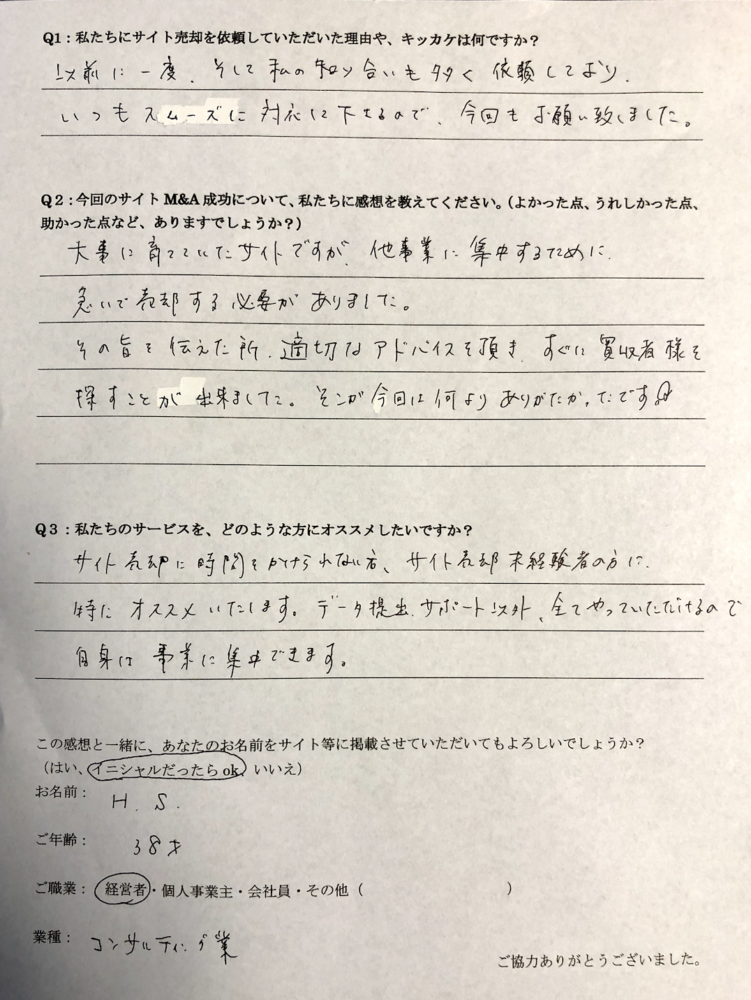 Q1：私たちにサイト売却を依頼していただいた理由や、キッカケは何ですか？
以前に一度、そして私の知り合いも多く依頼しており、
いつもスムーズに対応して下さるので、今回もお願い致しました。
Q2：今回のサイトM&A成功について、私たちに感想を教えてください。（よかった点、うれしかった点、
助かった点など、ありますでしょうか？）
大事に育てていたサイトですが、他事業に集中するために、
急いで売却する必要がありました。
その旨を伝えた所、適切なアドバイスを頂き、すぐに買収者様を
探すことが出来ました。そこが今回は何よりありがたかったです。
Q３：私たちのサービスを、どのような方にオススメしたいですか？
サイト売却に時間をかけられない方、サイト売却未経験者の方に、
特にオススメいたします。データ提出、サポート以外、全てやっていただけるので
自身は事業に集中できます。
この感想と一緒に、あなたのお名前をサイト等に掲載させていただいてもよろしいでしょうか？
（はい、イニシャルだったらok、いいえ）
お名前： H. S.
ご年齢： 38才
ご職業： 経営者・個人事業主・会社員・その他（ ）
業種： コンサルティング業
ご協力ありがとうございました。